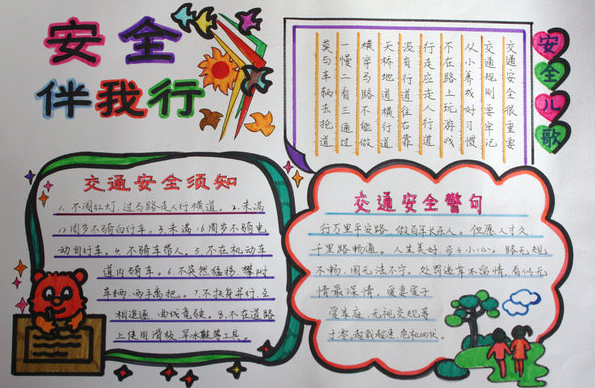 安全
伴我行
安全儿歌
交通安全很重要
交通规则要牢记
从小养成好习惯
不在路上玩游戏
行走应走人行道
没有行道往右靠
天桥地道横行道
横穿马路不能做
一慢二看三通过
莫与车辆去抢道
交通安全须知
1、不闯红灯,过马路走人行横道。2、未满
12周岁不骑自行车。3、未满16周岁不骑电
动自行车。4、不骑车带人。5、不在机动车
道内骑车。6、不突然猛拐,攀扶
车辆,两手离把。7、不扶身并行,互
相追逐,曲线竞驶。8、不在道路
上使用滑板,旱冰鞋等工具。
交通安全警句
行万里平安路 做百年长在人。但愿人才久
千里路畅通。人生美好,步步小心。路无规
不畅,国无法不宁,处罚违章不留情,看似无
情最深情。爱妻爱子
爱家庭,无视交规等
于零,超载超速危机四伏。